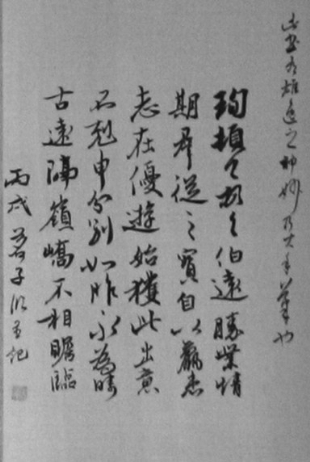 雄逸之神妙乃大手筆也
珣頓々首々伯遠勝業情
期羣從之寶自以羸患
志在優遊始獲此出意
不剋申分別如昨永為疇
古遠隔嶺嶠不相瞻臨
丙戌 記